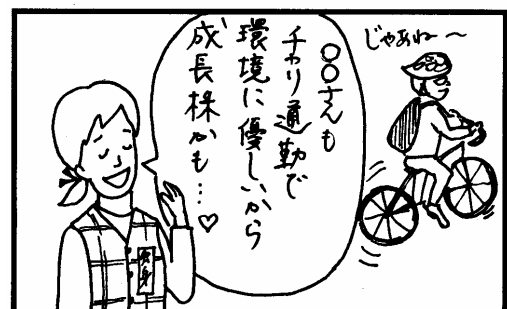 じゃあね～
〇〇さんも
チャリ通勤で
環境に優しいから
成長株かも…♡